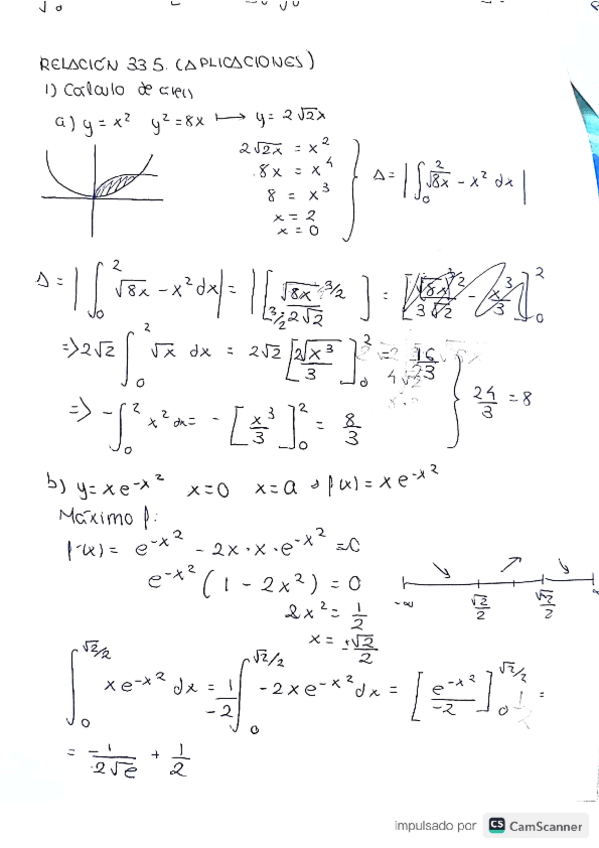 RELACIÓN 33 5. (APLICACIONES)
1) Calculo de areas
a) y = x² y² = 8x ↦ y = 2√2x
2√2x = x²
8x = x⁴
8 = x³
x = 2
x = 0
A = |∫₀² √8x - x² dx|
A = |∫₀² √8x - x² dx| = |[√8x ³/² / 3/2 2√2] = [√8x ³/² / 3√2 - x³/3]₀²
=> 2√2 ∫₀² √x dx = 2√2 [2√x³ / 3]₀² = 16/3
=> -∫₀² x² dx = -[x³/3]₀² = 8/3
24/3 = 8
b) y = x e^-x² x = 0 x = a f(x) = x e^-x²
Máximo f:
f'(x) = e^-x² - 2x · x · e^-x² = 0
e^-x² (1 - 2x²) = 0
2x² = 1/2
x = ±√2/2
-∞ √2/2 √2/2
∫₀^√2/2 x e^-x² dx = 1/-2 ∫₀^√2/2 -2x e^-x² dx = [e^-x² / -2]₀^√2/2 =
= -1/2√e + 1/2
impulsado por CS CamScanner